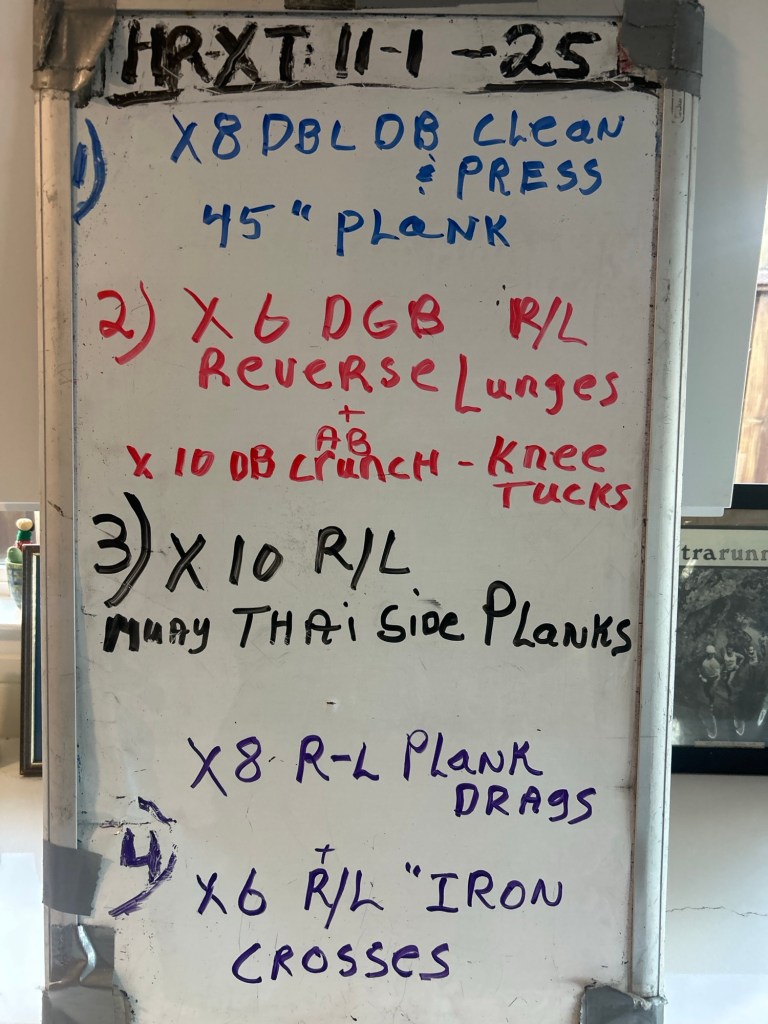 HR-XT: 11-1-25
1) X8 DBL DB Clean
& PRESS
45" PLANK
2) X 6 DGB R/L
Reverse Lunges
+
AB
X 10 DB Crunch - Knee
TUCKS
3) X 10 R/L
MUAY THAi SiDe PLanKS
X8 R-L PLANK
DRAgS
4)
+
X6 R/L "IRON
CROSSes
trarunn